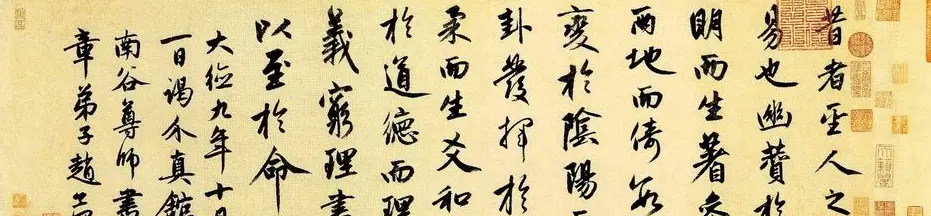 昔者聖人之
易也幽贊於
明而生蓍參
兩地而倚數
變於陰陽而
卦發揮於
柔而生爻和
於道德而理
義窮理盡
以至於命
大德九年十月
一日謁介真館
南谷尊師書
章弟子趙孟